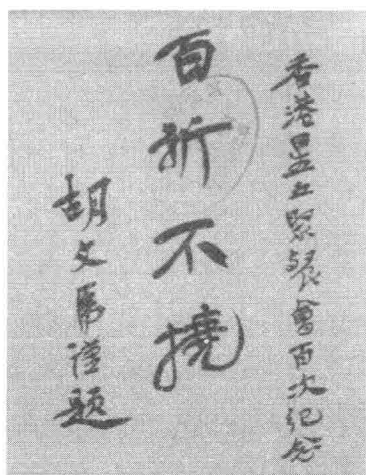 香港星工聚餐會百次紀念
百折不撓
胡文虎謹題